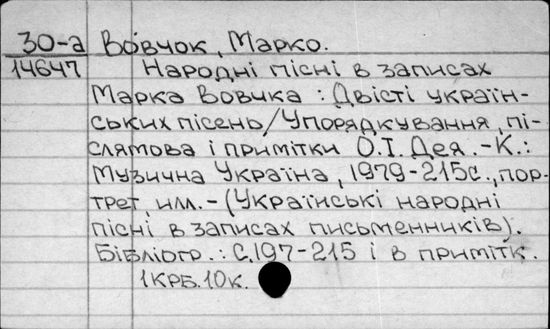 30-а Вовчок, Марко.
14647 Народні пісні в записах
Марка Вовчка : Двісті україн-
ських пісень/Упорядкування, пі-
слямова і примітки О.І. Дея.-К.:
Музична Україна, 1979-215с., пор-
трет, илл.-(Українські народні
пісні в записах письменників).
Бібліогр.: С.197-215 і в примітк.
1крб.10к.